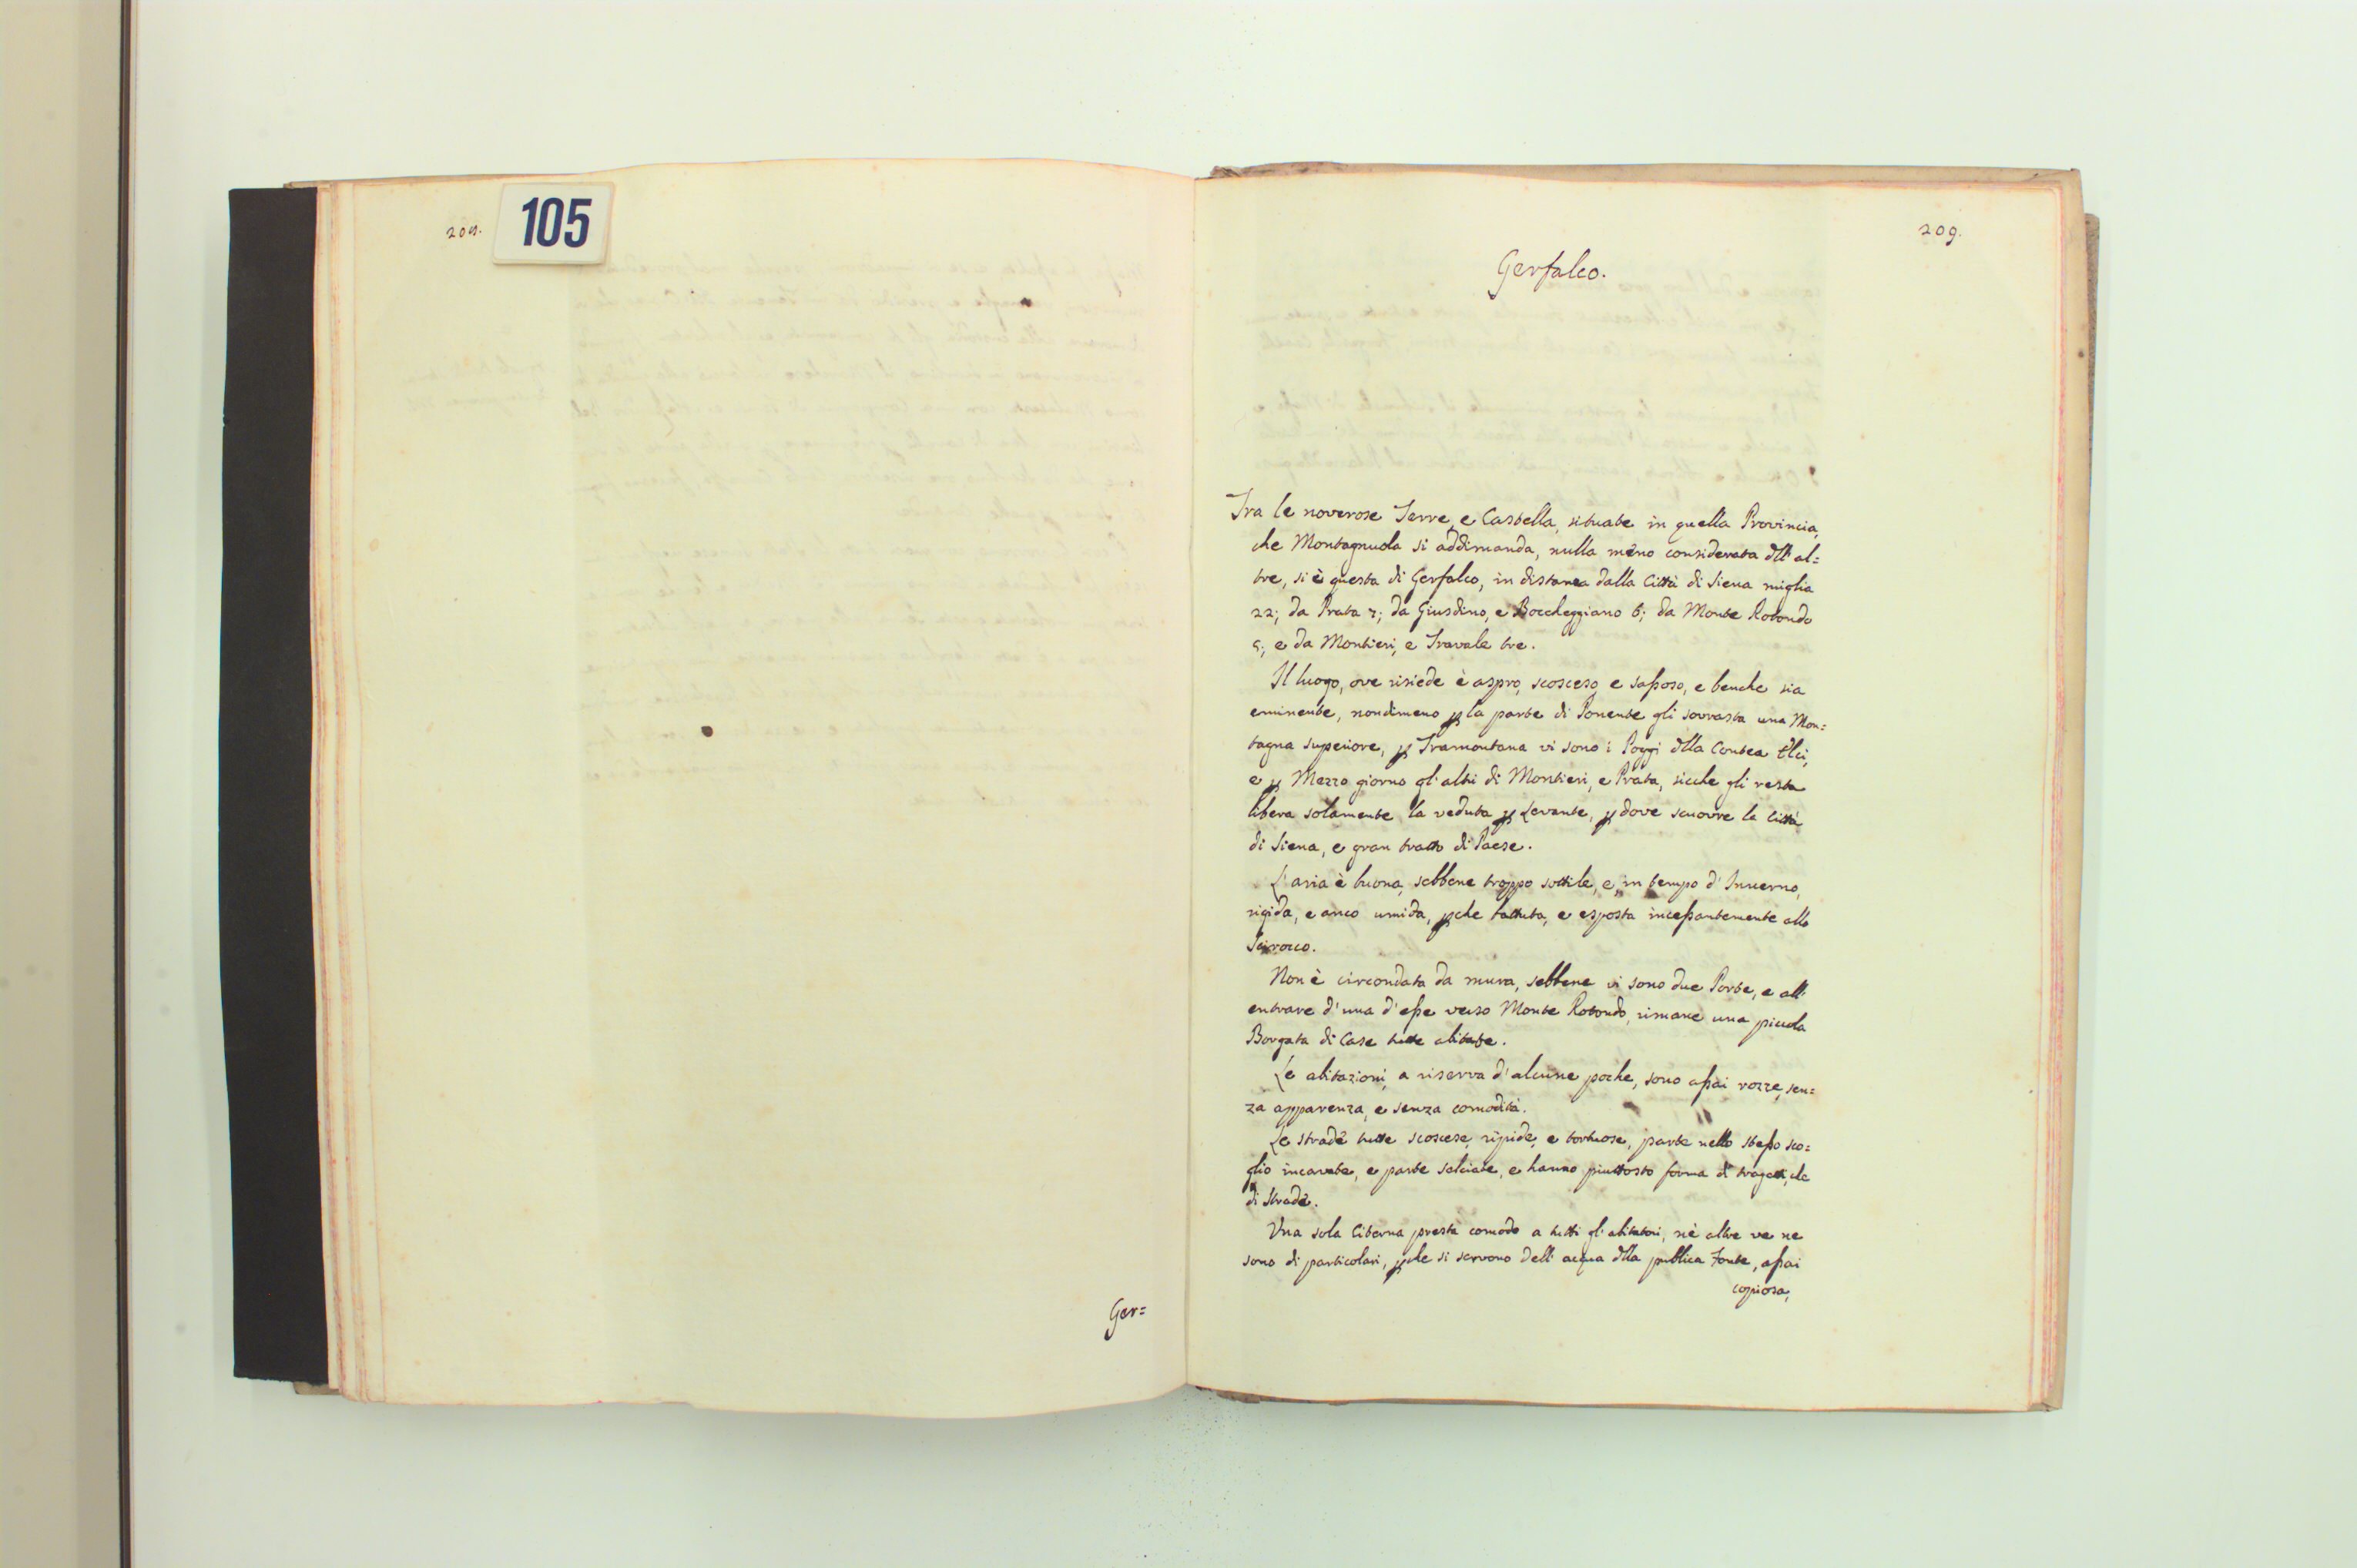 208.
105
Ger=
209.
Gerfalco.
Tra le noverose Terre, e Castella, situate in quella Provincia,
che Montagnuola si addimanda, nulla mêno considerata dll' al=
tre, si è questa di Gerfalco, in distanza dalla Città di Siena miglia
22; da Prata 7; da Giusdino, e Boccheggiano 6; da Monte Rotondo
5; e da Montieri, e Travale tre.
Il luogo, ove risiede è aspro, scosceso, e sassoso, e benche sia
eminente, nondimeno p la parte di Ponente gli sovrasta una Mon=
tagna superiore, p Tramontana vi sono i Poggi dlla Contea Elci,
e p Mezzo giorno gl' altri di Montieri, e Prata, sicche gli resta
libera solamente la veduta p Levante, p dove scuovre la Città
di Siena, e gran tratto di Paese.
L' aria è buona, sebbene troppo sottile, e in tempo d' Inverno,
rigida, e anco umida, pche battuta, e esposta incessantemente allo
Scirocco.
Non è circondata da mura, sebbene vi sono due Porte, e all'
entrare d' una d' esse verso Monte Rotondo, rimane una piccola
Borgata di Case tutte abitate.
Le abitazioni, a riserva d' alcune poche, sono assai rozze, sen=
za apparenza, e senza comodità.
Le strade tutte scoscese, ripide, e tortuose, parte nello stesso sco=
glio incavate, e parte selciate, e hanno piuttosto forma di tragetti, che
di Strade.
Una sola Citerna presta comodo a tutti gl' abitatori, nè altre ve ne
sono di particolari, pche si servono dell' acqua dlla publica Fonte, assai
copiosa,